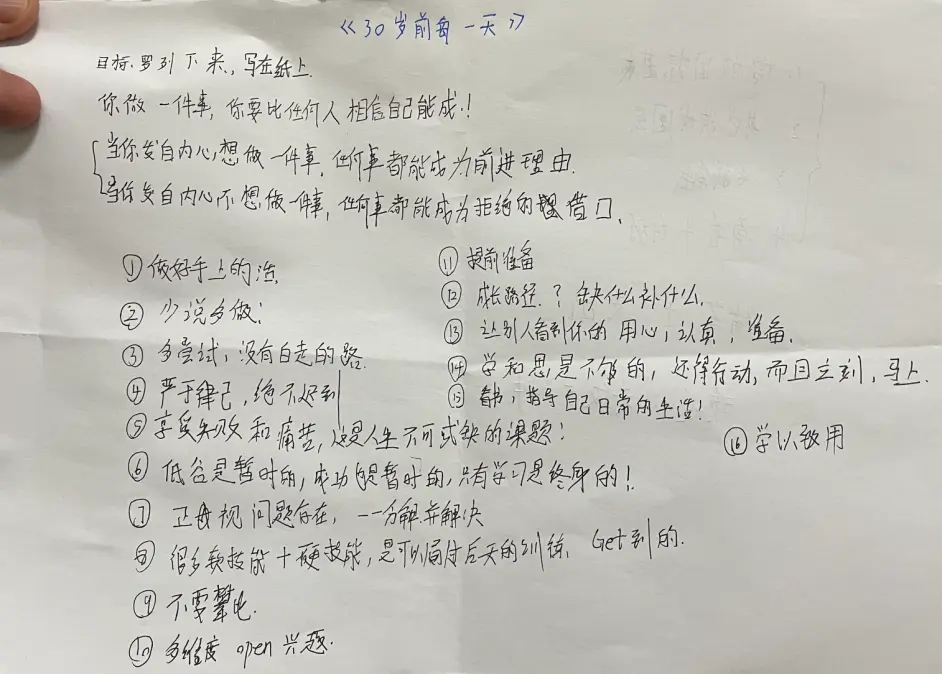 《30岁前每一天》
目标.罗列下来,写在纸上.
你做一件事,你要比任何人相信自己能成!
当你发自内心,想做一件事,任何事都能成为前进理由.
当你发自内心不想做一件事,任何事都能成为拒绝的借口、
①做好手上的活.
②少说多做;
③多尝试,没有白走的路.
④严于律己,绝不迟到
⑤享受失败和痛苦,这是人生不可或缺的课题!
⑥低谷是暂时的,成功是暂时的,只有学习是终身的!
⑦正视问题存在,一一分解.并解决
⑧很多软技能+硬技能,是可以通过后天的训练、Get到的.
⑨不要攀比.
⑩多维度open兴趣.
⑪提前准备
⑫成长路径.?缺什么补什么.
⑬让别人看到你的用心,认真,准备.
⑭学和思是不够的,还得行动,而且立刻,马上.
⑮看书,指导自己日常的生活!
⑯学以致用